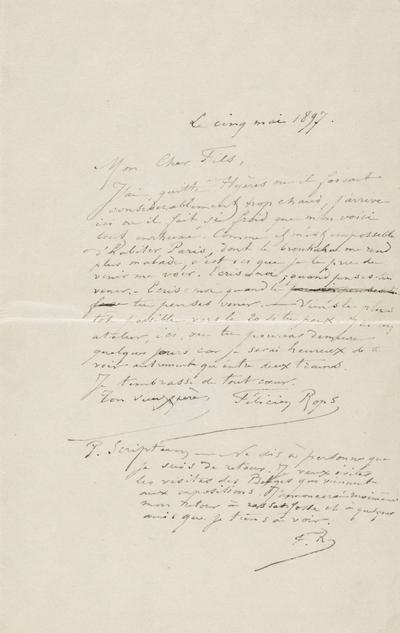 Le cinq mai 1897.
Mon Cher Fils,
J'ai quitté Hyères où il faisait
considérablement trop chaud, j'arrive
ici où il fait si froid que m'en voici
tout enrhumé. Comme il m'est impossible
d'habiter Paris, dont le brouhaha me rend
plus malade, c'est ici que je te prie de
venir me voir. quand penses-tu
venir. – Ecris-moi quand
tu penses venir. – Viens le plus
tôt possible vers le 20 si tu peux
atelier, ici, où tu pourras demeurer
quelques jours car je serai heureux de te
voir autrement qu'entre deux trains.
Je t'embrasse de tout cœur.
Ton vieux père, Félicien Rops
P. Scriptum – Ne dis à personne que
je suis de retour. Je veux éviter
les visites des Belges qui viennent
aux expositions. J'annoncerai moi-même
mon retour à et à quelques
amis que je tiens à voir.
F. R.